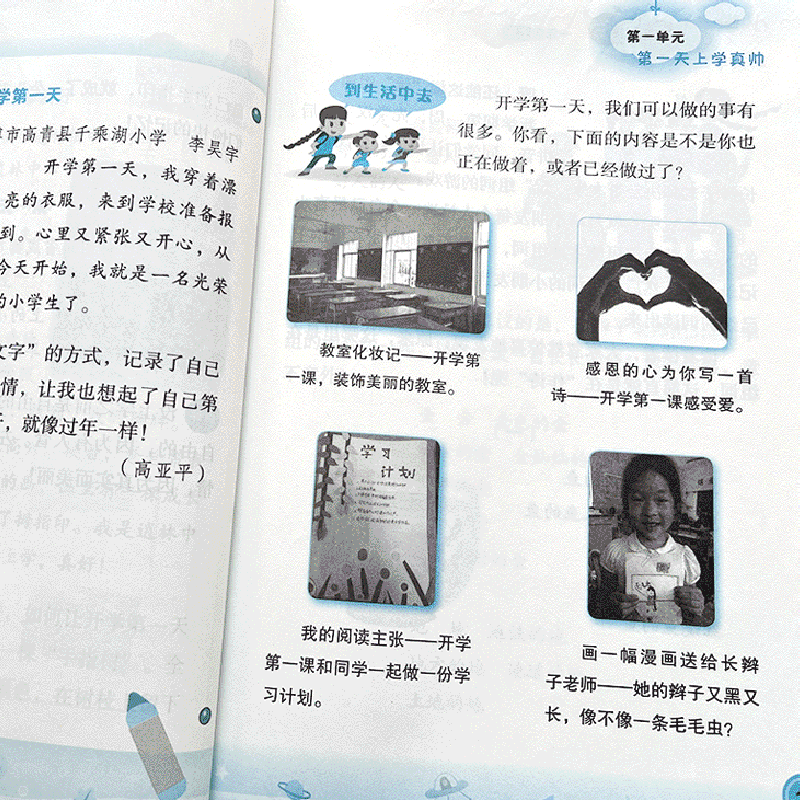 学第一天
市高青县千乘湖小学 李昊宇
开学第一天，我穿着漂
亮的衣服，来到学校准备报
到。心里又紧张又开心，从
今天开始，我就是一名光荣
的小学生了。
文字”的方式，记录了自己
情，让我也想起了自己第
，就像过年一样！
（高亚平）
第一单元
第一天上学真帅
到生活中去
开学第一天，我们可以做的事有
很多。你看，下面的内容是不是你也
正在做着，或者已经做过了？
教室化妆记——开学第
一课，装饰美丽的教室。
感恩的心为你写一首
诗——开学第一课感受爱。
学习
计划
我的阅读主张——开学
第一课和同学一起做一份学
习计划。
画一幅漫画送给长辫
子老师——她的辫子又黑又
长，像不像一条毛毛虫？